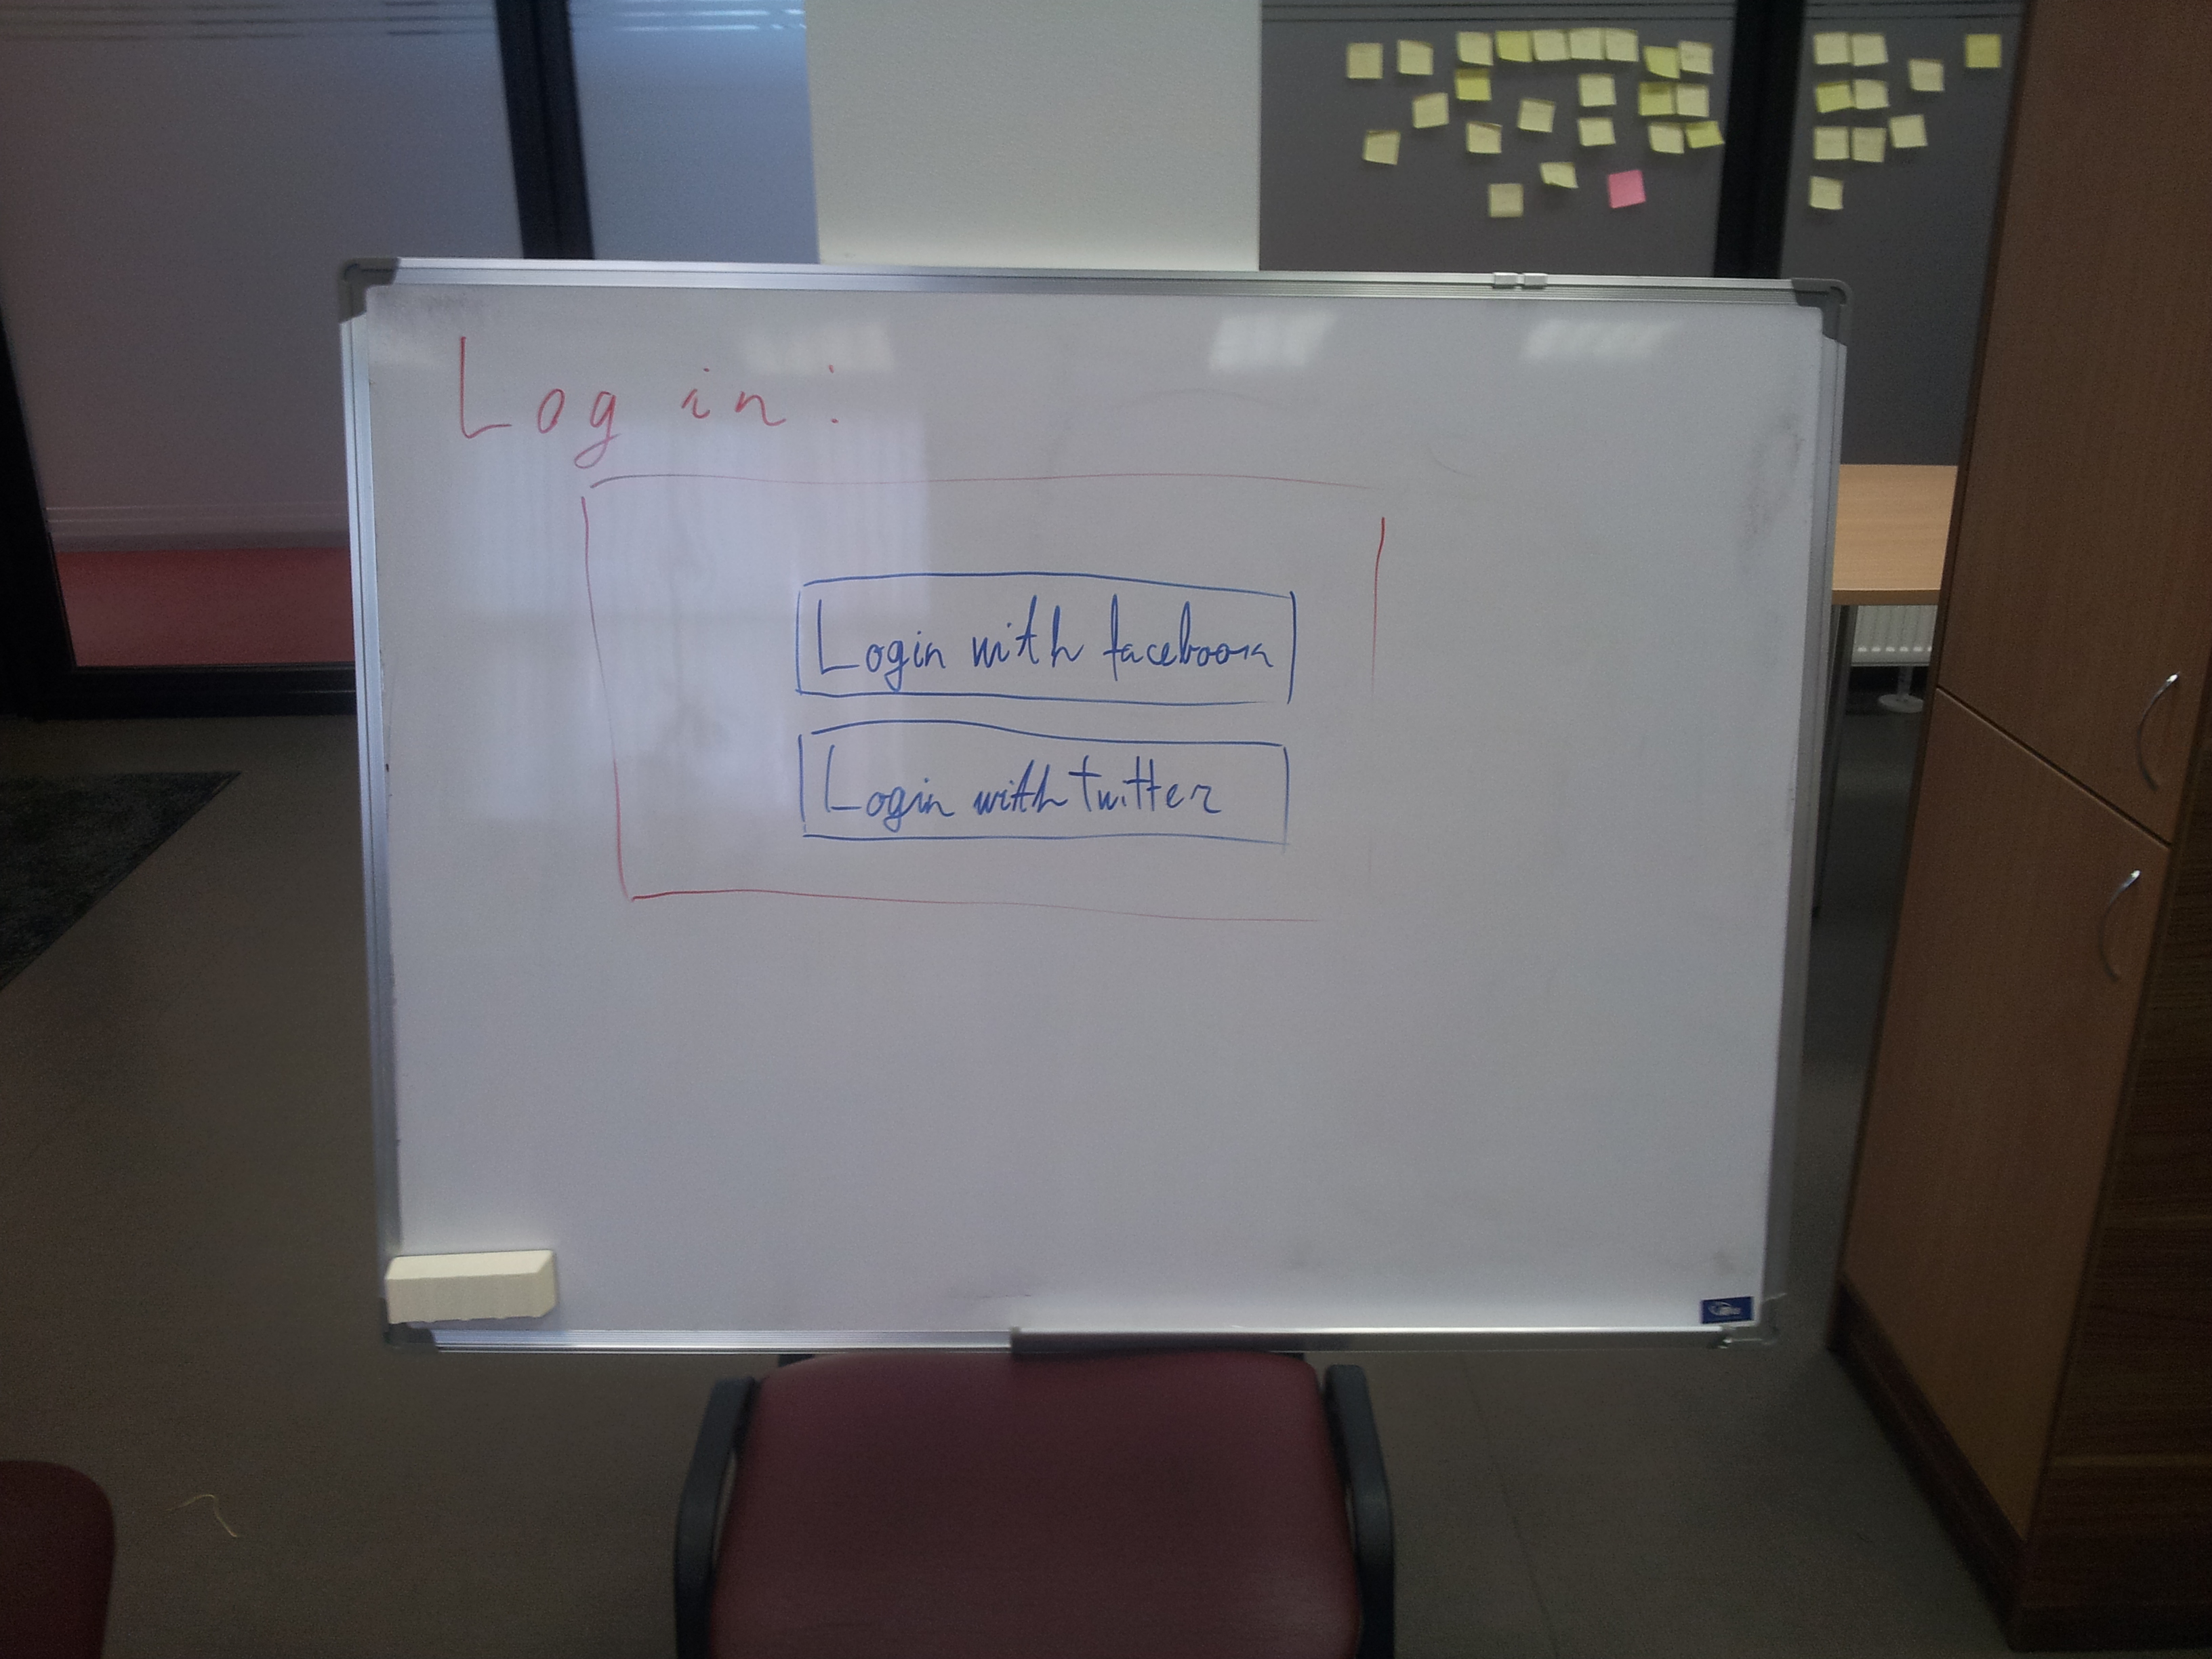 Log in:
Login with facebook
Login with twitter